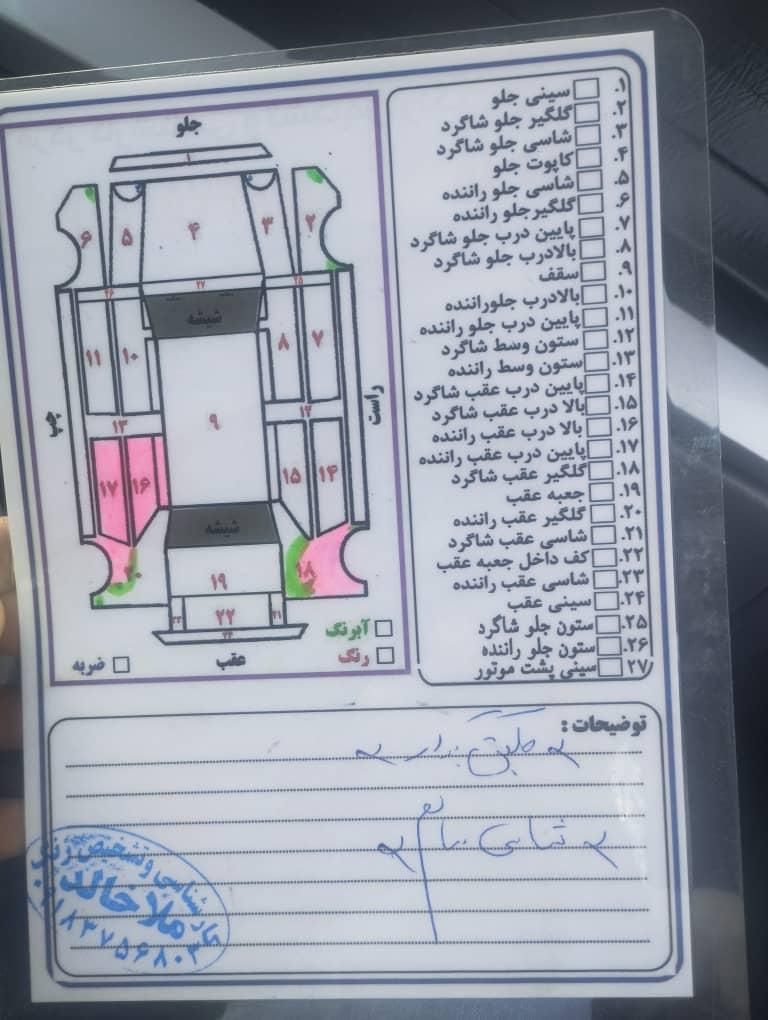 جلو
۱
۶ ۵ ۴ ۳ ۲
۲۶ ۲۷ ۲۵
شیشه
۱۱ ۱۰ ۸ ۷
چپ
راست
۹
۱۳ ۱۲
۱۷ ۱۶ ۱۵ ۱۴
شیشه
۱۸
۱۹
۲۳ ۲۲ ۲۱
۲۴
عقب
آبرنگ
رنگ
ضربه
۱. سینی جلو
۲. گلگیر جلو شاگرد
۳. شاسی جلو شاگرد
۴. کاپوت جلو
۵. شاسی جلو راننده
۶. گلگیرجلو راننده
۷. پایین درب جلو شاگرد
۸. بالادرب جلو شاگرد
۹. سقف
۱۰. بالادرب جلوراننده
۱۱. پایین درب جلو راننده
۱۲. ستون وسط شاگرد
۱۳. ستون وسط راننده
۱۴. پایین درب عقب شاگرد
۱۵. بالا درب عقب شاگرد
۱۶. بالا درب عقب راننده
۱۷. پایین درب عقب راننده
۱۸. گلگیر عقب شاگرد
۱۹. جعبه عقب
۲۰. گلگیر عقب راننده
۲۱. شاسی عقب شاگرد
۲۲. کف داخل جعبه عقب
۲۳. شاسی عقب راننده
۲۴. سینی عقب
۲۵. ستون جلو شاگرد
۲۶. ستون جلو راننده
۲۷. سینی پشت موتور
توضیحات :
کارشناسی و تشخیص رنگ
ملا خالد